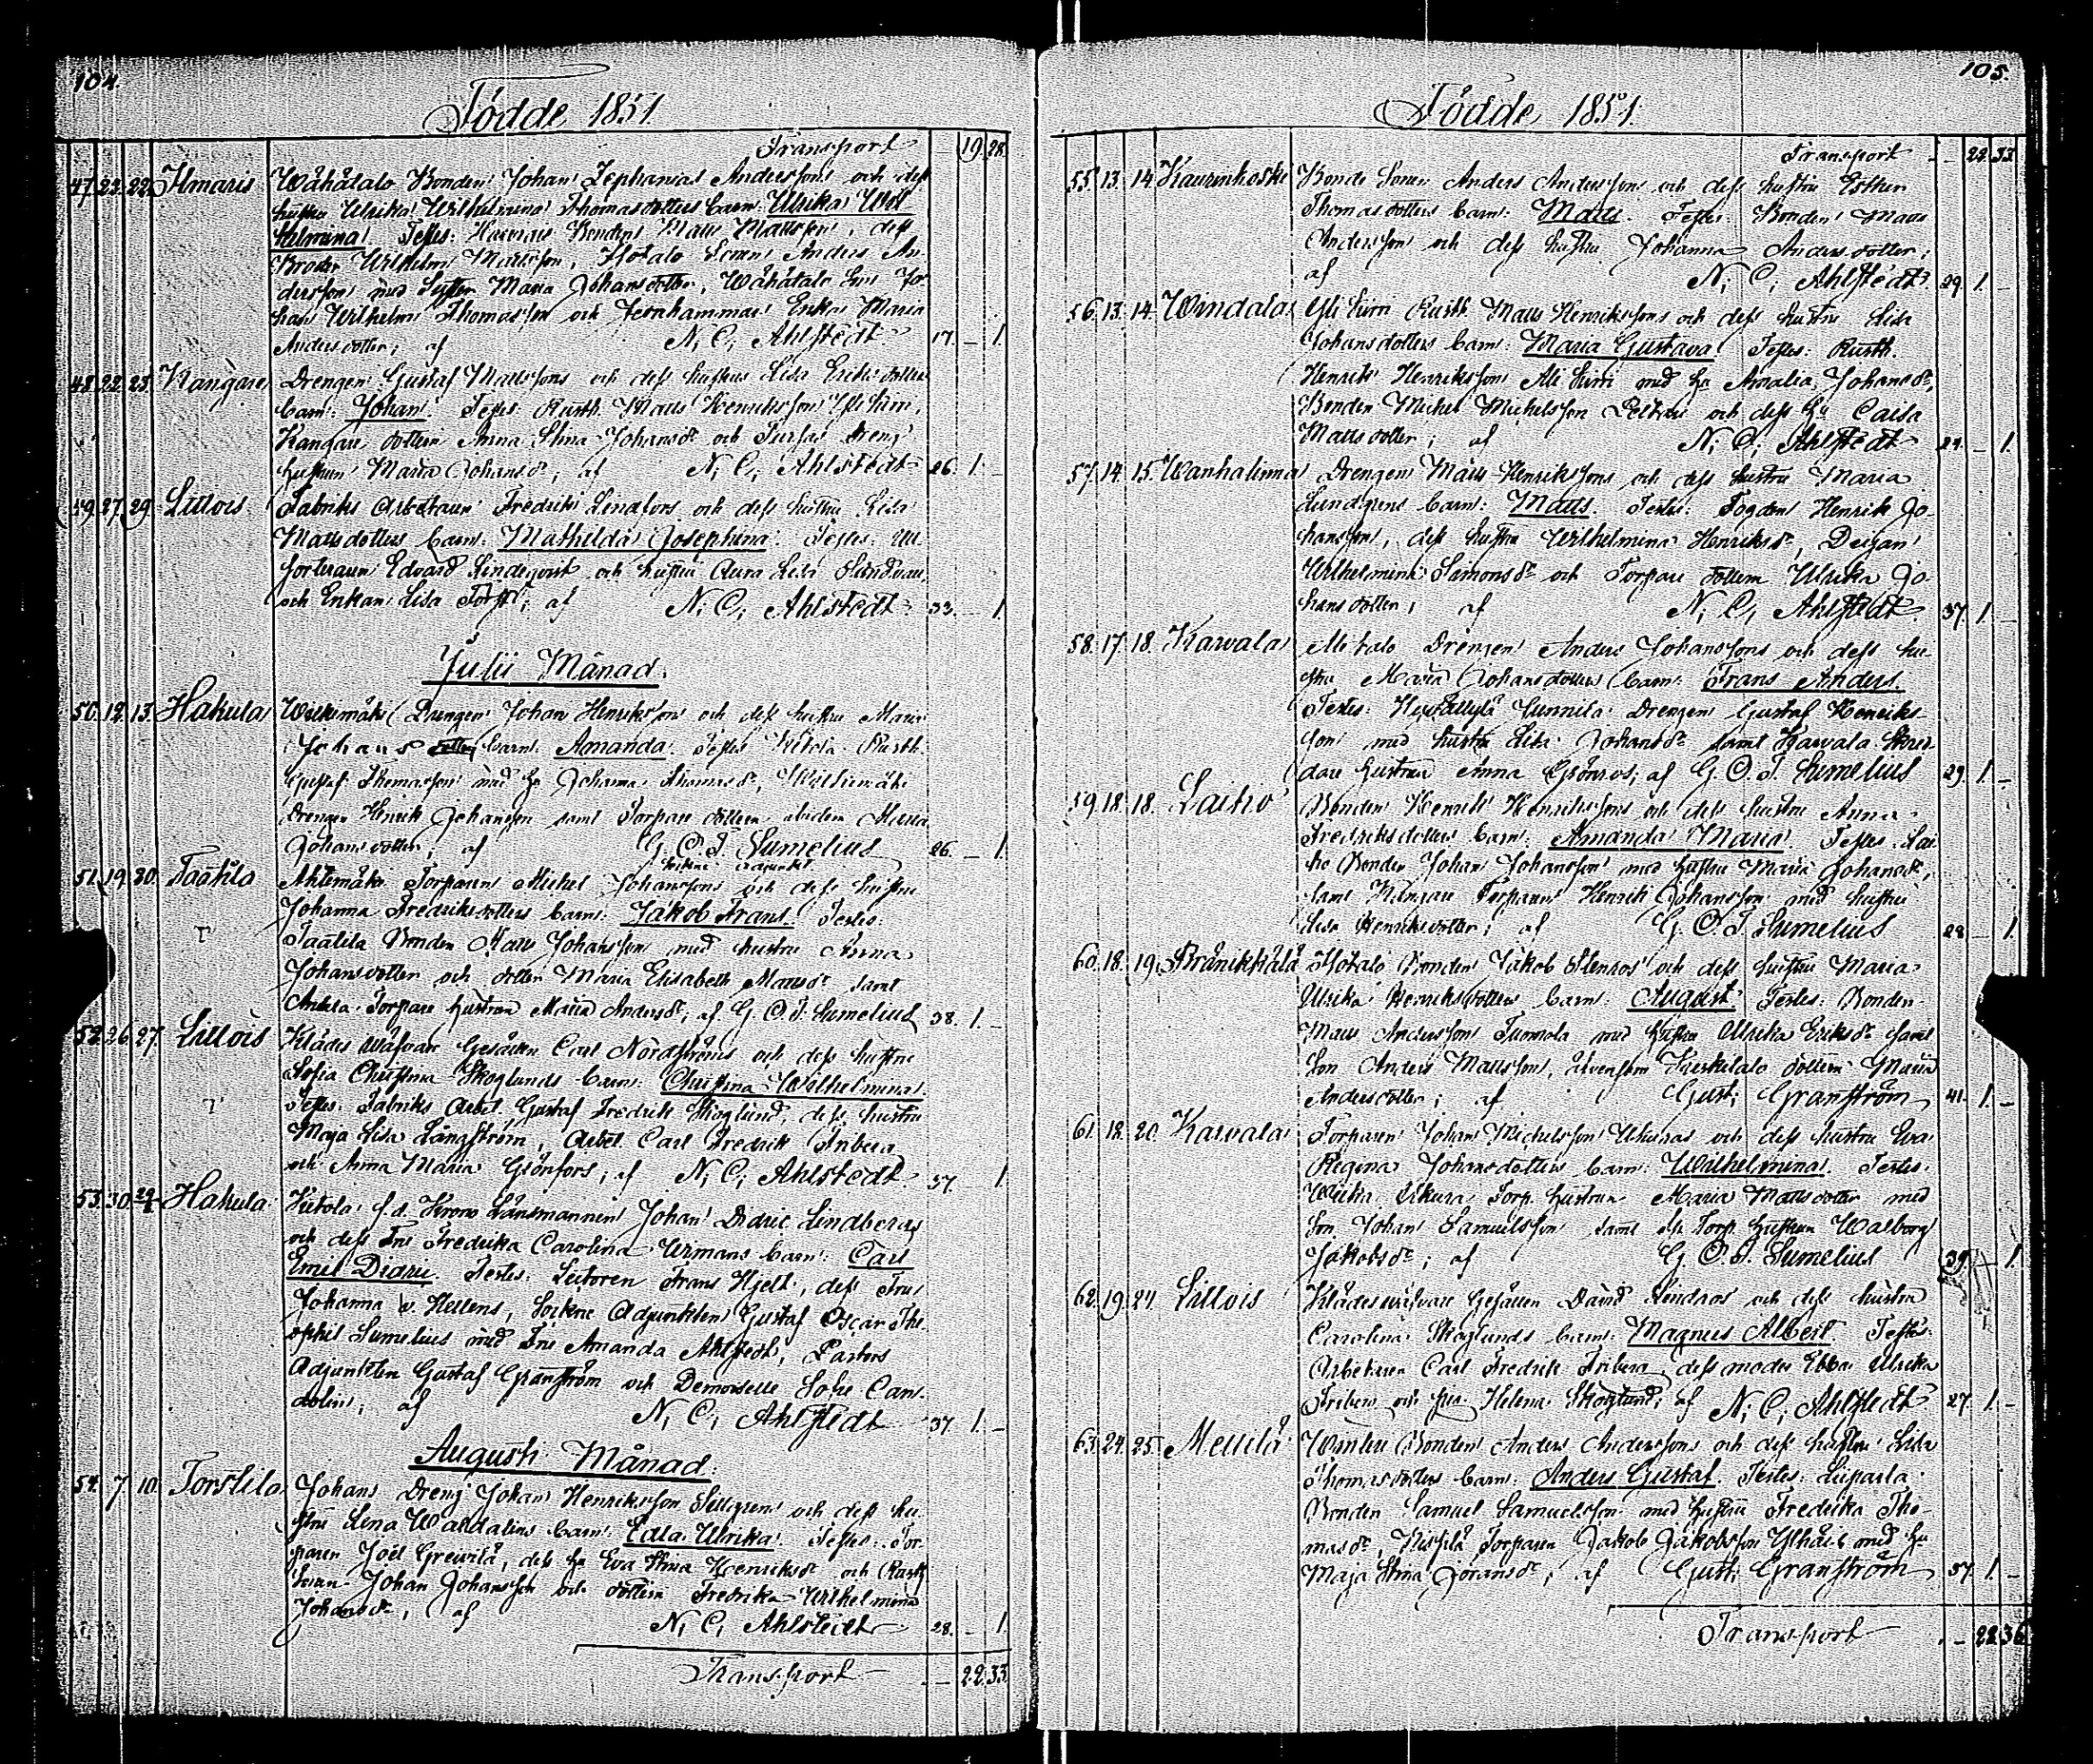 104.
Födde 1851.
Transport — 19. 28.
47. 22. 22. Ilmaris Wähätalo Bonden Johan Zephanias Anderssons och dess
hustru Ulrika Wilhelmina Thomasdotters barn: Ulrika Wil
helmina. Testes: Bonden Matts Mattsson, dess
Broder Wilhelm Mattsson, Isotalo Sonen Anders An-
dersson med Syster Maria Johansdotter, Wähätalo Son Jo-
han Wilhelm Thomasson och Enkan Maria
Andersdotter; af N. C. Ahlstedt 17. — 1.
48. 22. 23. Kangare Drengen Gustaf Mattssons och dess hustrus Lisa Ericsdotters
barn: Johan. Testes: Rusth. Matts Henriksson
Kangare dottern Anna Stina Johansdr och dreng
hustrun Maria Johansdr; af N. C. Ahlstedt 26. 1. —
49. 27. 29. Littois Fabriks Arbetaren Fredrik Lindfors och dess hustru Lisa
Mattsdotters barn: Mathilda Josephina. Testes:
Edvard Lindeqvist och hustru Lisa
och Enkan Lisa; af N. C. Ahlstedt 33. — 1.
Julii Månad.
50. 12. 13. Hakula Drengen Johan Henrikssons och dess hustru Maria
Johans dotters barn: Amanda. Testes Ketola Rusth.
Gustaf Thomasson med hu Johanna Thomasdr,
Drengen Henrik Johansson samt Torpare dottern ibidem Maria
Johansdotter; af G. O. T. Sumelius 26. — 1.
Sockne adjunkt
51. 19. 20. Taatila Torparen Michel Johanssons och dess hustru
Johanna Fredriksdotters barn: Jakob Frans. Testes:
Taatila Bonden Matts Johansson med hustru Anna
Johansdotter och dotter Maria Elisabeth Mattsdr samt
Torpare hustrun Maria Andersdr; af G. O. T. Sumelius 38. 1. —
52. 26. 27. Littois Klädes Wäfvare Gesällen Carl Nordströms och dess hustru
Sofia Christina Skoglunds barn: Christina Wilhelmina.
Testes: Fabriks Arbet. Gustaf Fredrik Skoglund, dess hustru
Maja Lisa Långström, Arbet. Carl Fredrik Friberg
och Anna Maria Grönfors; af N. C. Ahlstedt 37. — 1.
53. 30. Hakula Ketola f. d. Krono Länsmannen Johan Didric Lindbergs
och dess Fru Fredrika Carolina Urmans barn: Carl
Emil Didric. Testes: Lectoren Frans Hjelt, dess Fru
Johanna v. Hellens, Sockne Adjunkten Gustaf Oscar The-
ophil Sumelius med Fru Amanda Ahlstedt, Pastors
Adjunkten Gustaf Granström och Demoiselle Sofie Can-
dolin; af N. C. Ahlstedt 37. 1. —
Augusti Månad.
54. 7. 10. Torstila Johans Dreng Johan Henriksson Sellgrens och dess hu-
stru Lena Wahdalins barn: Edla Ulrika. Testes: Tor-
paren Joël Grewilä, dess hu Eva Stina Henriksdr och Rusth.
Sonen Johan Johansson och dottern Fredrika Wilhelmina
Johansdr; af N. C. Ahlstedt 28. — 1.
Transport — 22. 33.
105.
Födde 1851.
Transport — 22. 33.
55. 13. 14. Kaurinkoski Bonde Sonen Anders Anderssons och dess hustru Esther
Thomasdotters barn: Matts. Testes: Bonden Matts
Andersson och dess hustru Johanna Andersdotter;
af N. C. Ahlstedt 29. 1. —
56. 13. 14. Windala Rusth. Matts Henrikssons och dess hustru Lisa
Johansdotters barn: Maria Gustava. Testes: Rusth.
Henrik Henriksson med hu Amalia Johansdr,
Bonden Michel Michelsson och dess hu Caisa
Mattsdotter; af N. C. Ahlstedt 24. — 1.
57. 14. 15. Wanhalinna Drengen Matts Henrikssons och dess hustru Maria
Lundgrens barn: Matts. Testes: Fogden Henrik Jo-
hansson, dess hustru Wilhelmina Henriksdr, Dejan
Wilhelmina Simonsdr och Torpare dottern Ulrika Jo-
hansdotter; af N. C. Ahlstedt 37. 1. —
58. 17. 18. Karvala Drengen Anders Johanssons och dess hu-
stru Maria Johansdotters barn: Frans Anders.
Testes: Junnila Drengen Gustaf Henriks-
son med hustru Lisa Johansdr samt Karvala Skred-
dare hustrun Anna Grönros; af G. O. T. Sumelius 29. 1. —
59. 18. 18. Laiho Bonden Henrik Henrikssons och dess hustru Anna
Fredriksdotters barn: Amanda Maria. Testes: Lai-
ho Bonden Johan Johansson med hustru Maria Johansdr,
samt Torparen Henrik Johansson med hustru
Lisa Henriksdotter; af G. O. T. Sumelius 28. — 1.
60. 18. 19. Pränikkälä Isotalo Bonden Jakob Stenros och dess hustru Maria
Ulrika Henriksdotters barn: August. Testes: Bonden
Matts Andersson Tuomola med hustru Ulrika Eriksdr samt
Son Anders Mattsson, äfvensom Keskitalo dottern Maria
Andersdotter; af Gust. Granström 41. 1. —
61. 18. 20. Karvala Torparen Johan Michelsson och dess hustru Eva
Regina Johansdotters barn: Wilhelmina. Testes:
Torp. hustrun Maria Mattsdotter med
Son Johan Samuelsson samt Torp. hustrun Walborg
Jakobsdr; af G. O. T. Sumelius 39. — 1.
62. 19. 24. Littois Klädeswäfvare Gesällen David Lindros och dess hustru
Carolina Skoglunds barn: Magnus Albert. Testes:
Arbetaren Carl Fredrik Friberg, dess moder Ebba Ulrika
Friberg och Helena Skoglund; af N. C. Ahlstedt 27. 1. —
63. 24. 25. Mellilä Bonden Anders Anderssons och dess hustru Lisa
Thomasdotters barn: Anders Gustaf. Testes:
Bonden Samuel Samuelsson med hustru Fredrika Tho-
masdr, Torparen Jakob Jakobsson med hu
Maja Stina Göransdr; af Gust. Granström 37. 1. —
Transport — 28. 36.